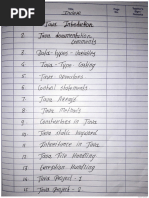 INDEX
Page No.
Java Introduction
2. Java documentation comments
3. Data-types - variables
4. Java - Type Casting
5. Java operators
6. Control statements
7. Java Arrays
8. Java Methods
9. Constructors in Java
10. Java static keyword
11. Inheritance in Java
12. Java File Handling
13. Exception Handling
14. Java Project - 1
15. Java Project - 2